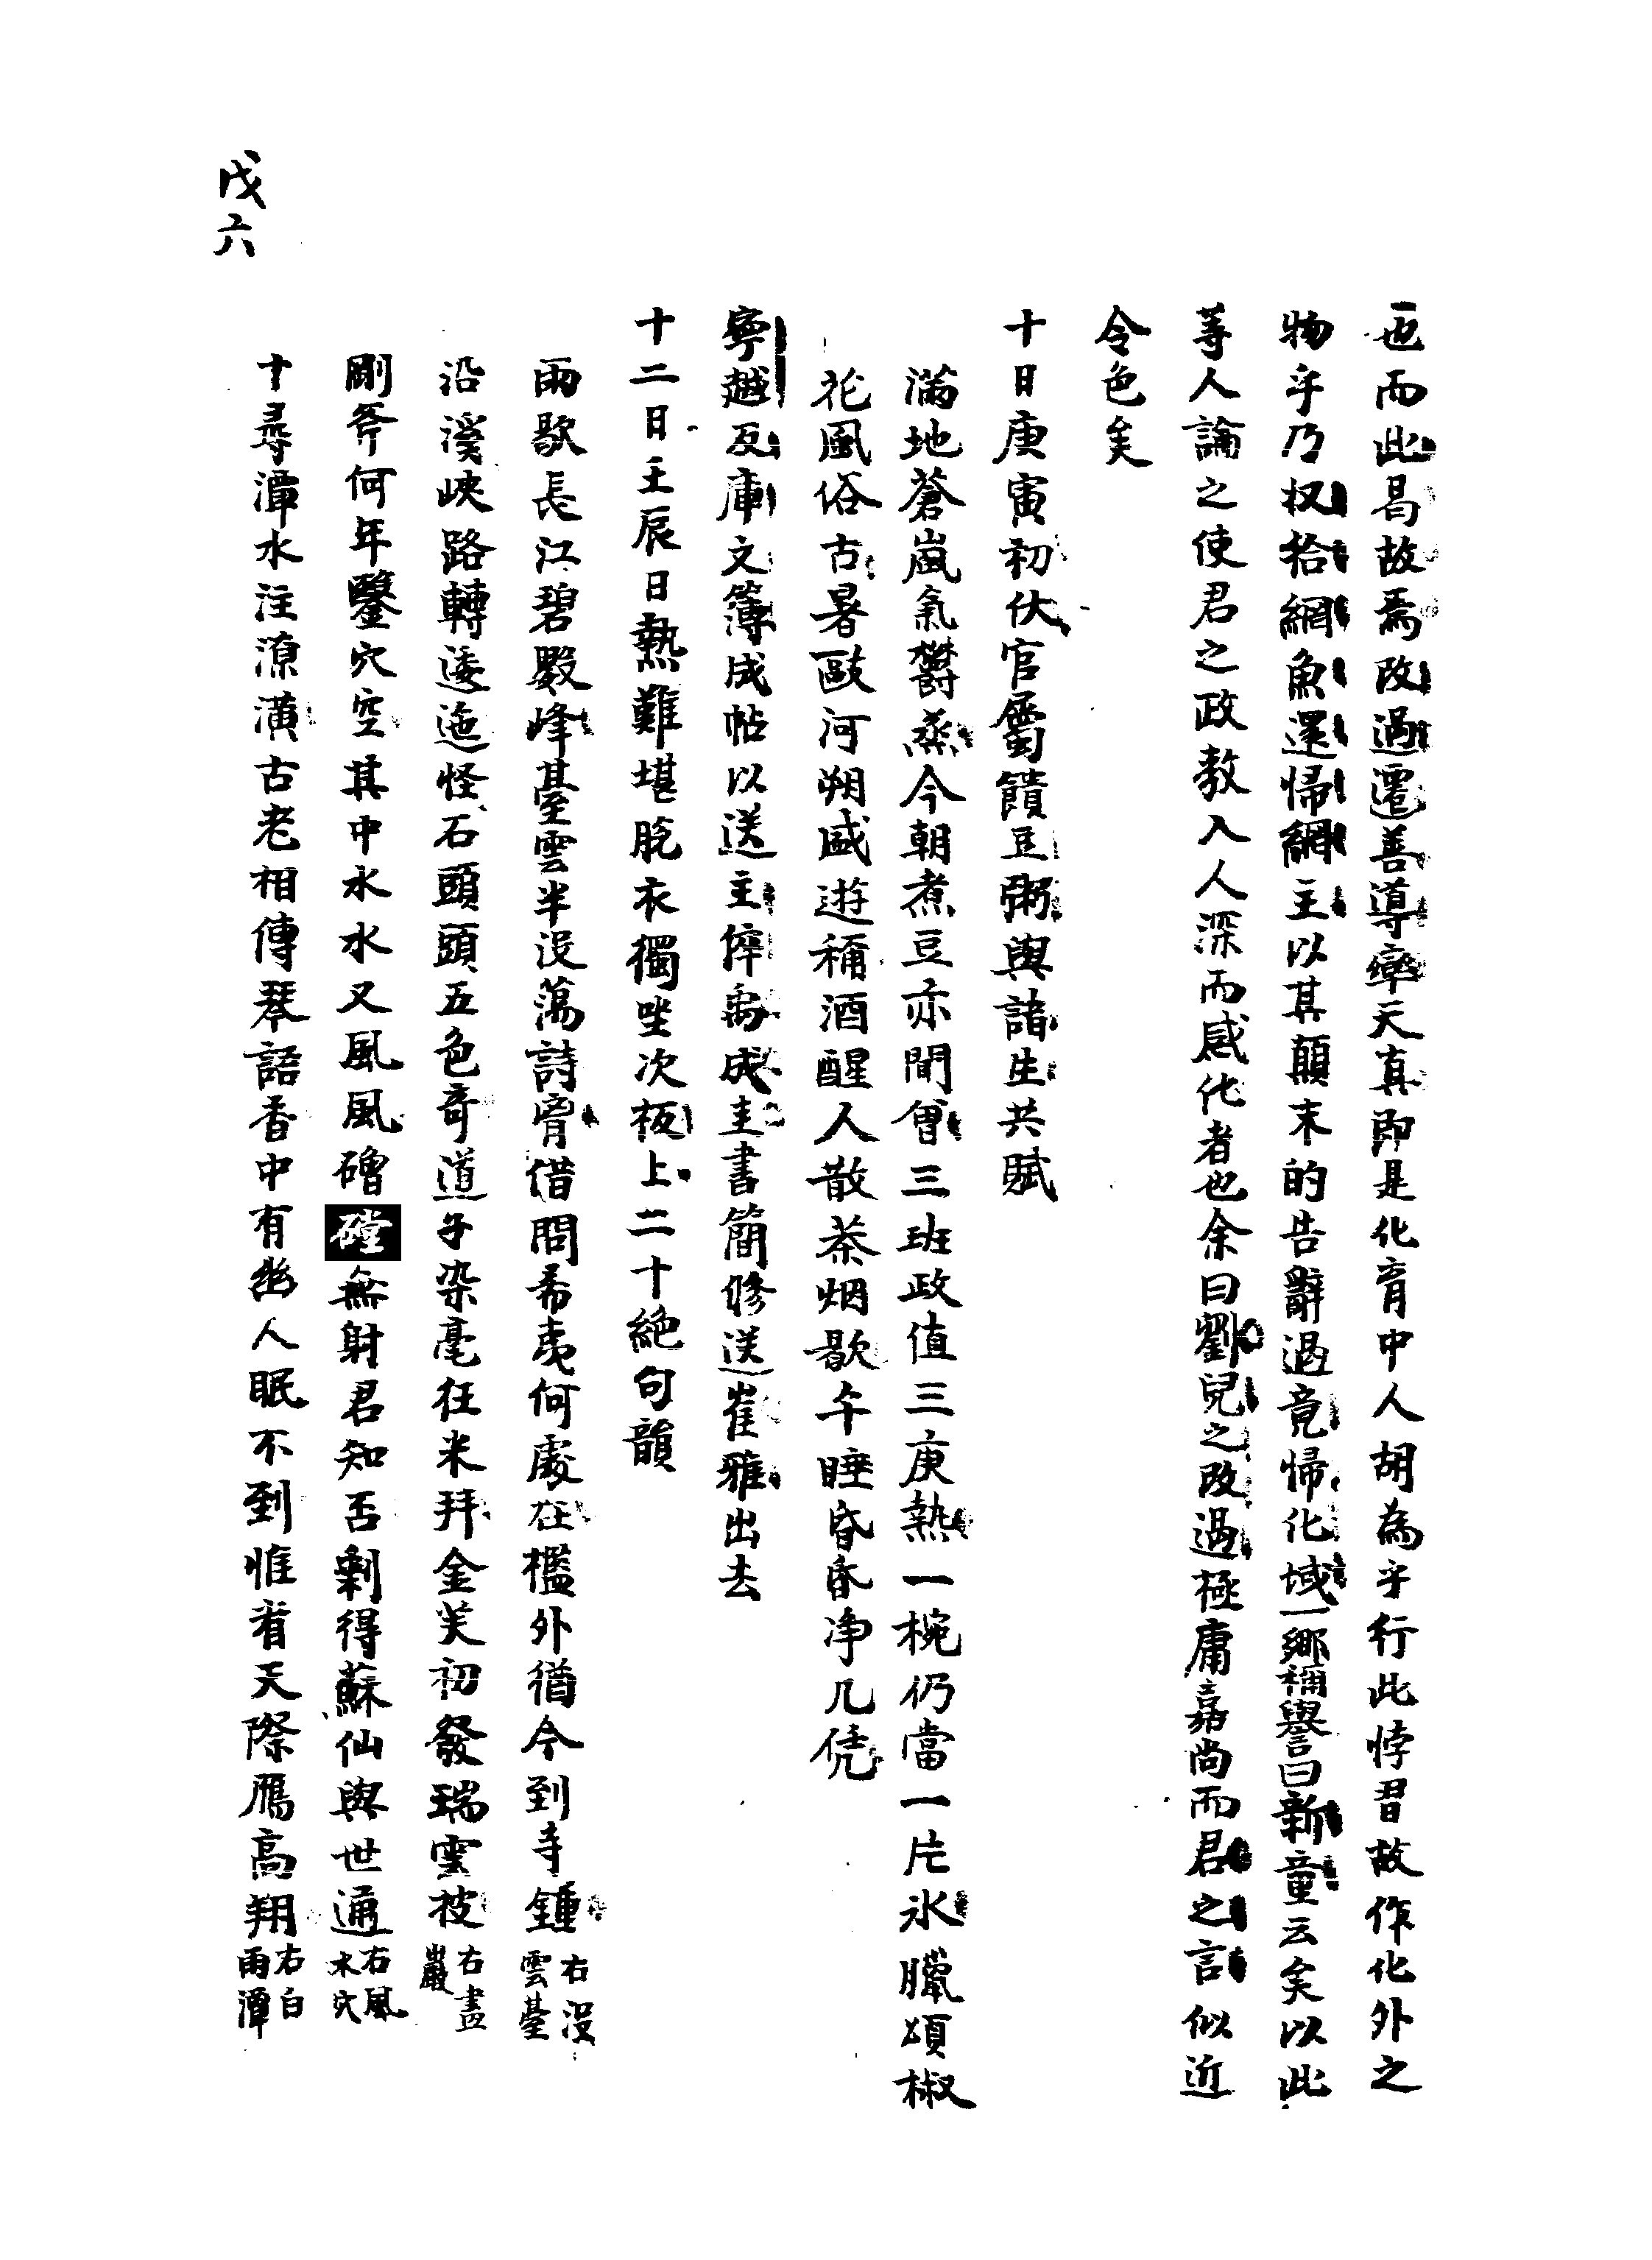 一也而此曷故焉改過遷善導率天真即是化育中人胡爲乎行此悖習故作化外之
物乎乃收拾網魚還歸網主以其顚末的告辭過竟歸化域一鄕稱譽曰新童云矣以此
等人論之使君之政教入人深而感化者也余曰劉兒之改過極庸嘉尙而君之言似近
令色矣
十日庚寅初伏官屬饋豆粥與諸生共賦
滿地蒼嵐氣鬱蒸今朝煮豆亦聞曾三班政值三庚熱一椀仍當一片氷臘頌椒
花風俗古暑敲河朔盛遊稱酒醒人散茶烟歇午睡昏昏净几凭
寧越反庫文簿成帖以送主倅禹成圭書簡修送崔雅出去
十二日壬辰日熱難堪脫衣獨坐次板上二十絶句韻
雨歇長江碧數峰臺雲半沒蕩詩胷借問希夷何處在檻外猶今到寺鍾 右沒雲臺
沿溪峽路轉逶迤怪石頭頭五色奇道子染毫狂米拜金芙初發瑞雲披 右畵巖
剛斧何年鑿穴空其中水水又風風磳磴無射君知否剩得蘇仙與世通 右風水穴
十尋潭水注潦潢古老相傳琴語香中有幽人眠不到惟看天際鴈高翔 右白雨潭
戊六